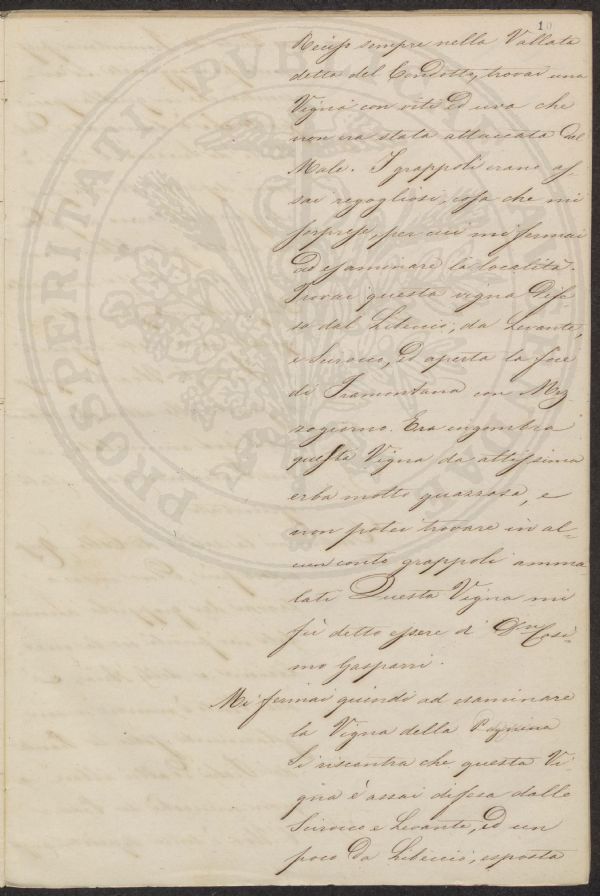 10
sempre nella Vallata
detta del Condotto, trovai una
Vigna con viti ed uva che
non era stata attaccata dal
Male. I grappoli erano as-
sai regogliosi, cosa che mi
sorprese, per cui mi fermai
ad esaminare la località.
Trovai questa vigna dife-
sa dal Libeccio, da Levante,
e Scirocco, ed aperta la foce
di Tramontana con Mez
zogiorno. Era ingombra
questa Vigna da altissima
erba molto guazzosa, e
non potei trovare in al-
cun conto grappoli amma-
lati Questa Vigna mi
fù detto essere di Dn Cosi-
mo Gasparri.
Mi fermai quindi ad esaminare
la Vigna della
Si riscontra che questa Vi-
gna è assai difesa dallo
Scirocco e Levante, ed un
poco da Libeccio, esposta
PROSPERITATI PUBLICAE AUGENDAE